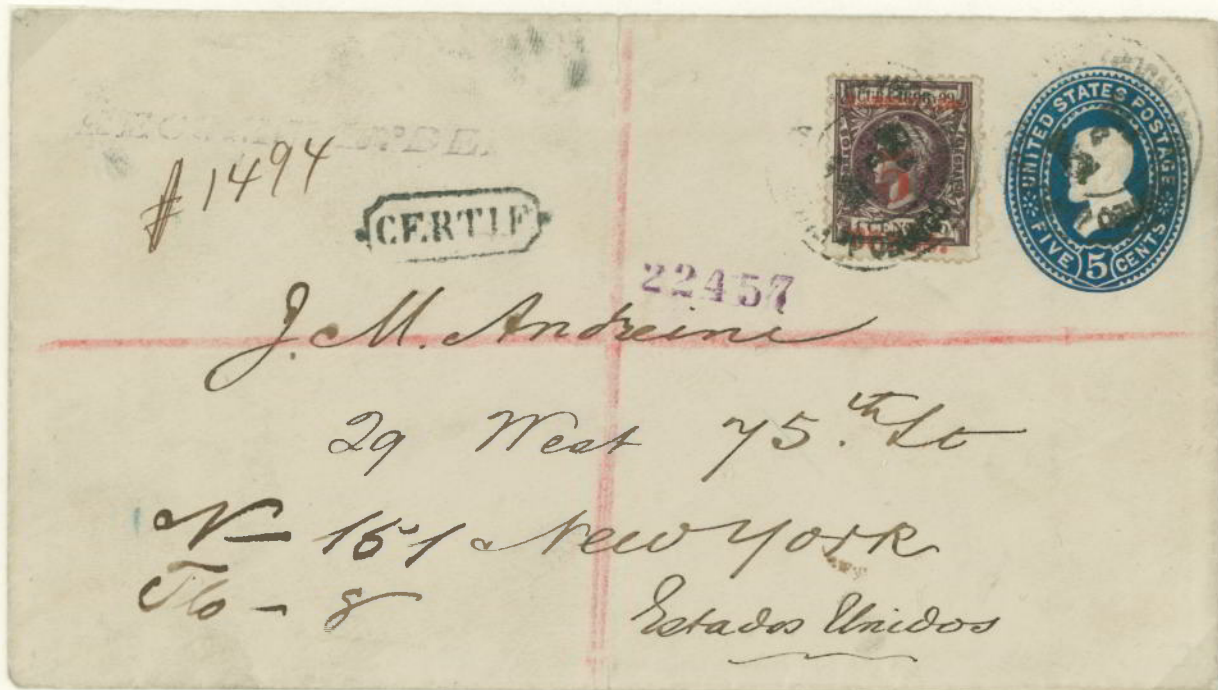 UNITED STATES POSTAGE
FIVE 5 CENTS
CUBA 1898 y 99
# 1494
CERTIF
22457
J. M. Andreini
29 West 75.th St
N— 151 New York
Flo — 8
Estados Unidos